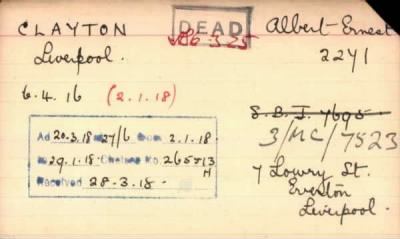 CLAYTON
DEAD
Albert Ernest
Liverpool.
6.3.25
2241
6.4.16 (2.1.18)
S.B.I. 7695
3/MC/7523
Ad 20.3.18 27/6 from 2.1.18
29.1.18. Chelsea No. 265513
H
Received 28.3.18.
7 Lowry St.
Everton
Liverpool.